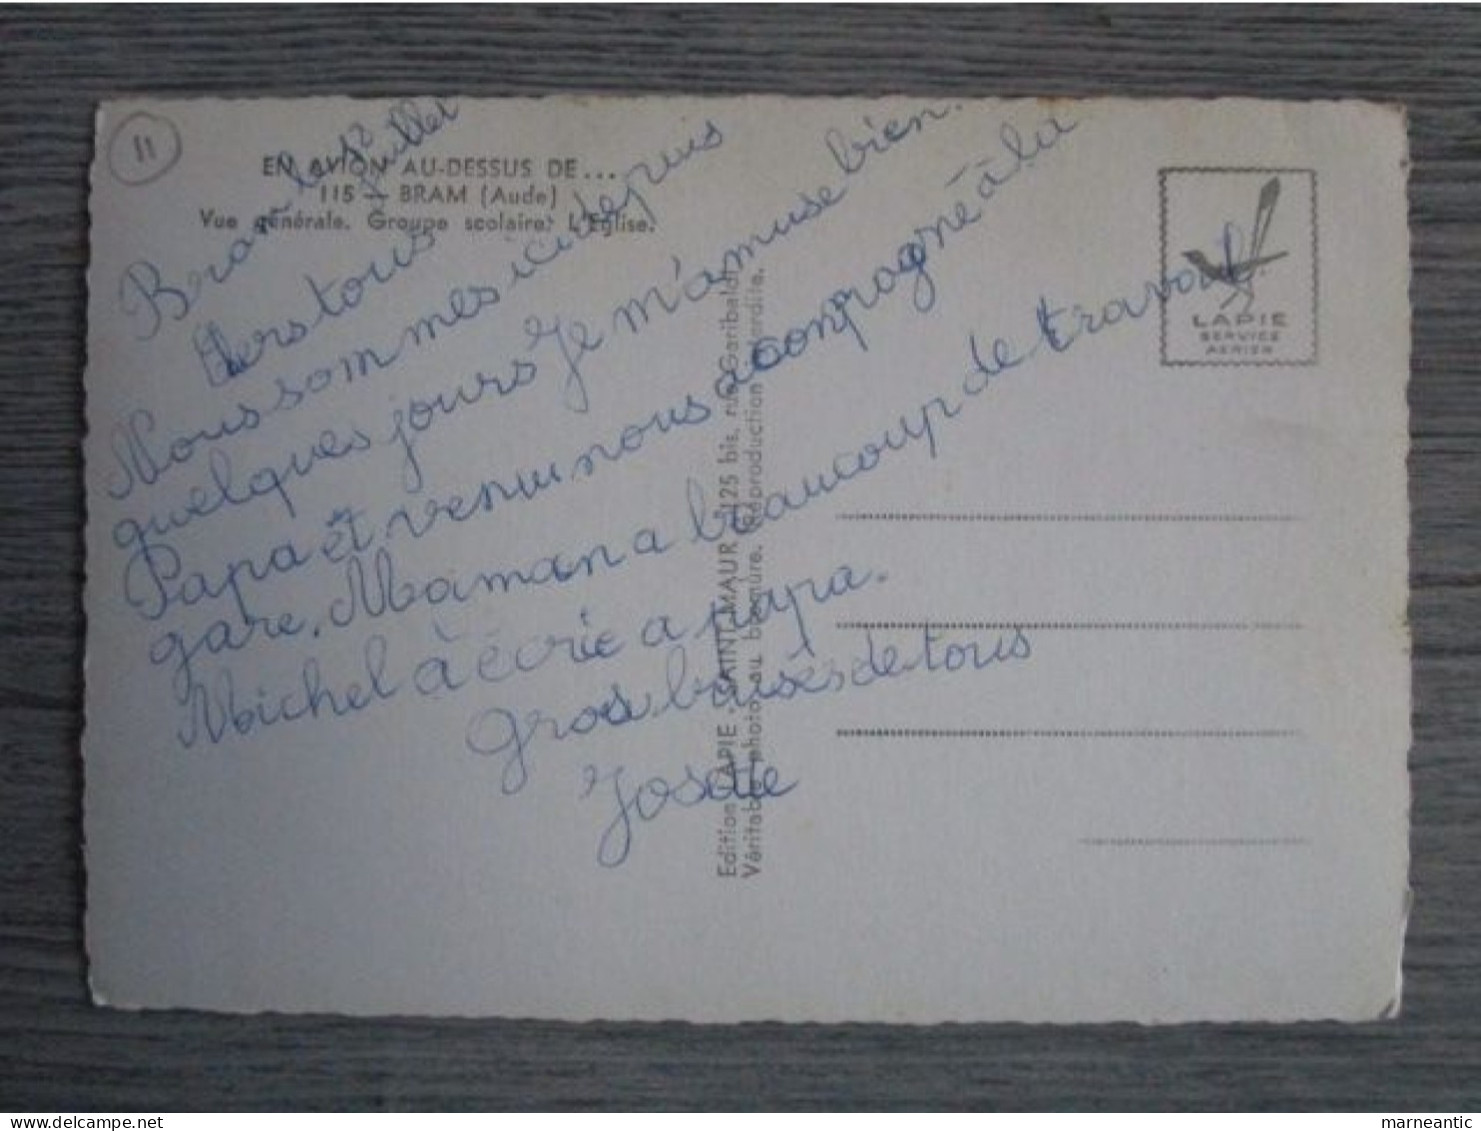 11
EN AVION AU-DESSUS DE...
115 — BRAM (Aude)
Vue générale. Groupe scolaire. L'Eglise.
Bram le 12 juillet
Chers tous
Nous sommes ici depuis
quelques jours Je m'amuse bien.
Papa et venu nous acompagné à la
gare. Maman a beaucoup de travail
Michel à écrie a papa.
Gros baisés de tous
Josette
Edition LAPIE - SAINT-MAUR - 125 bis, rue Garibaldi
Véritable photo au bromure. Reproduction interdite.
LAPIE
SERVICE
AERIEN
marneantic